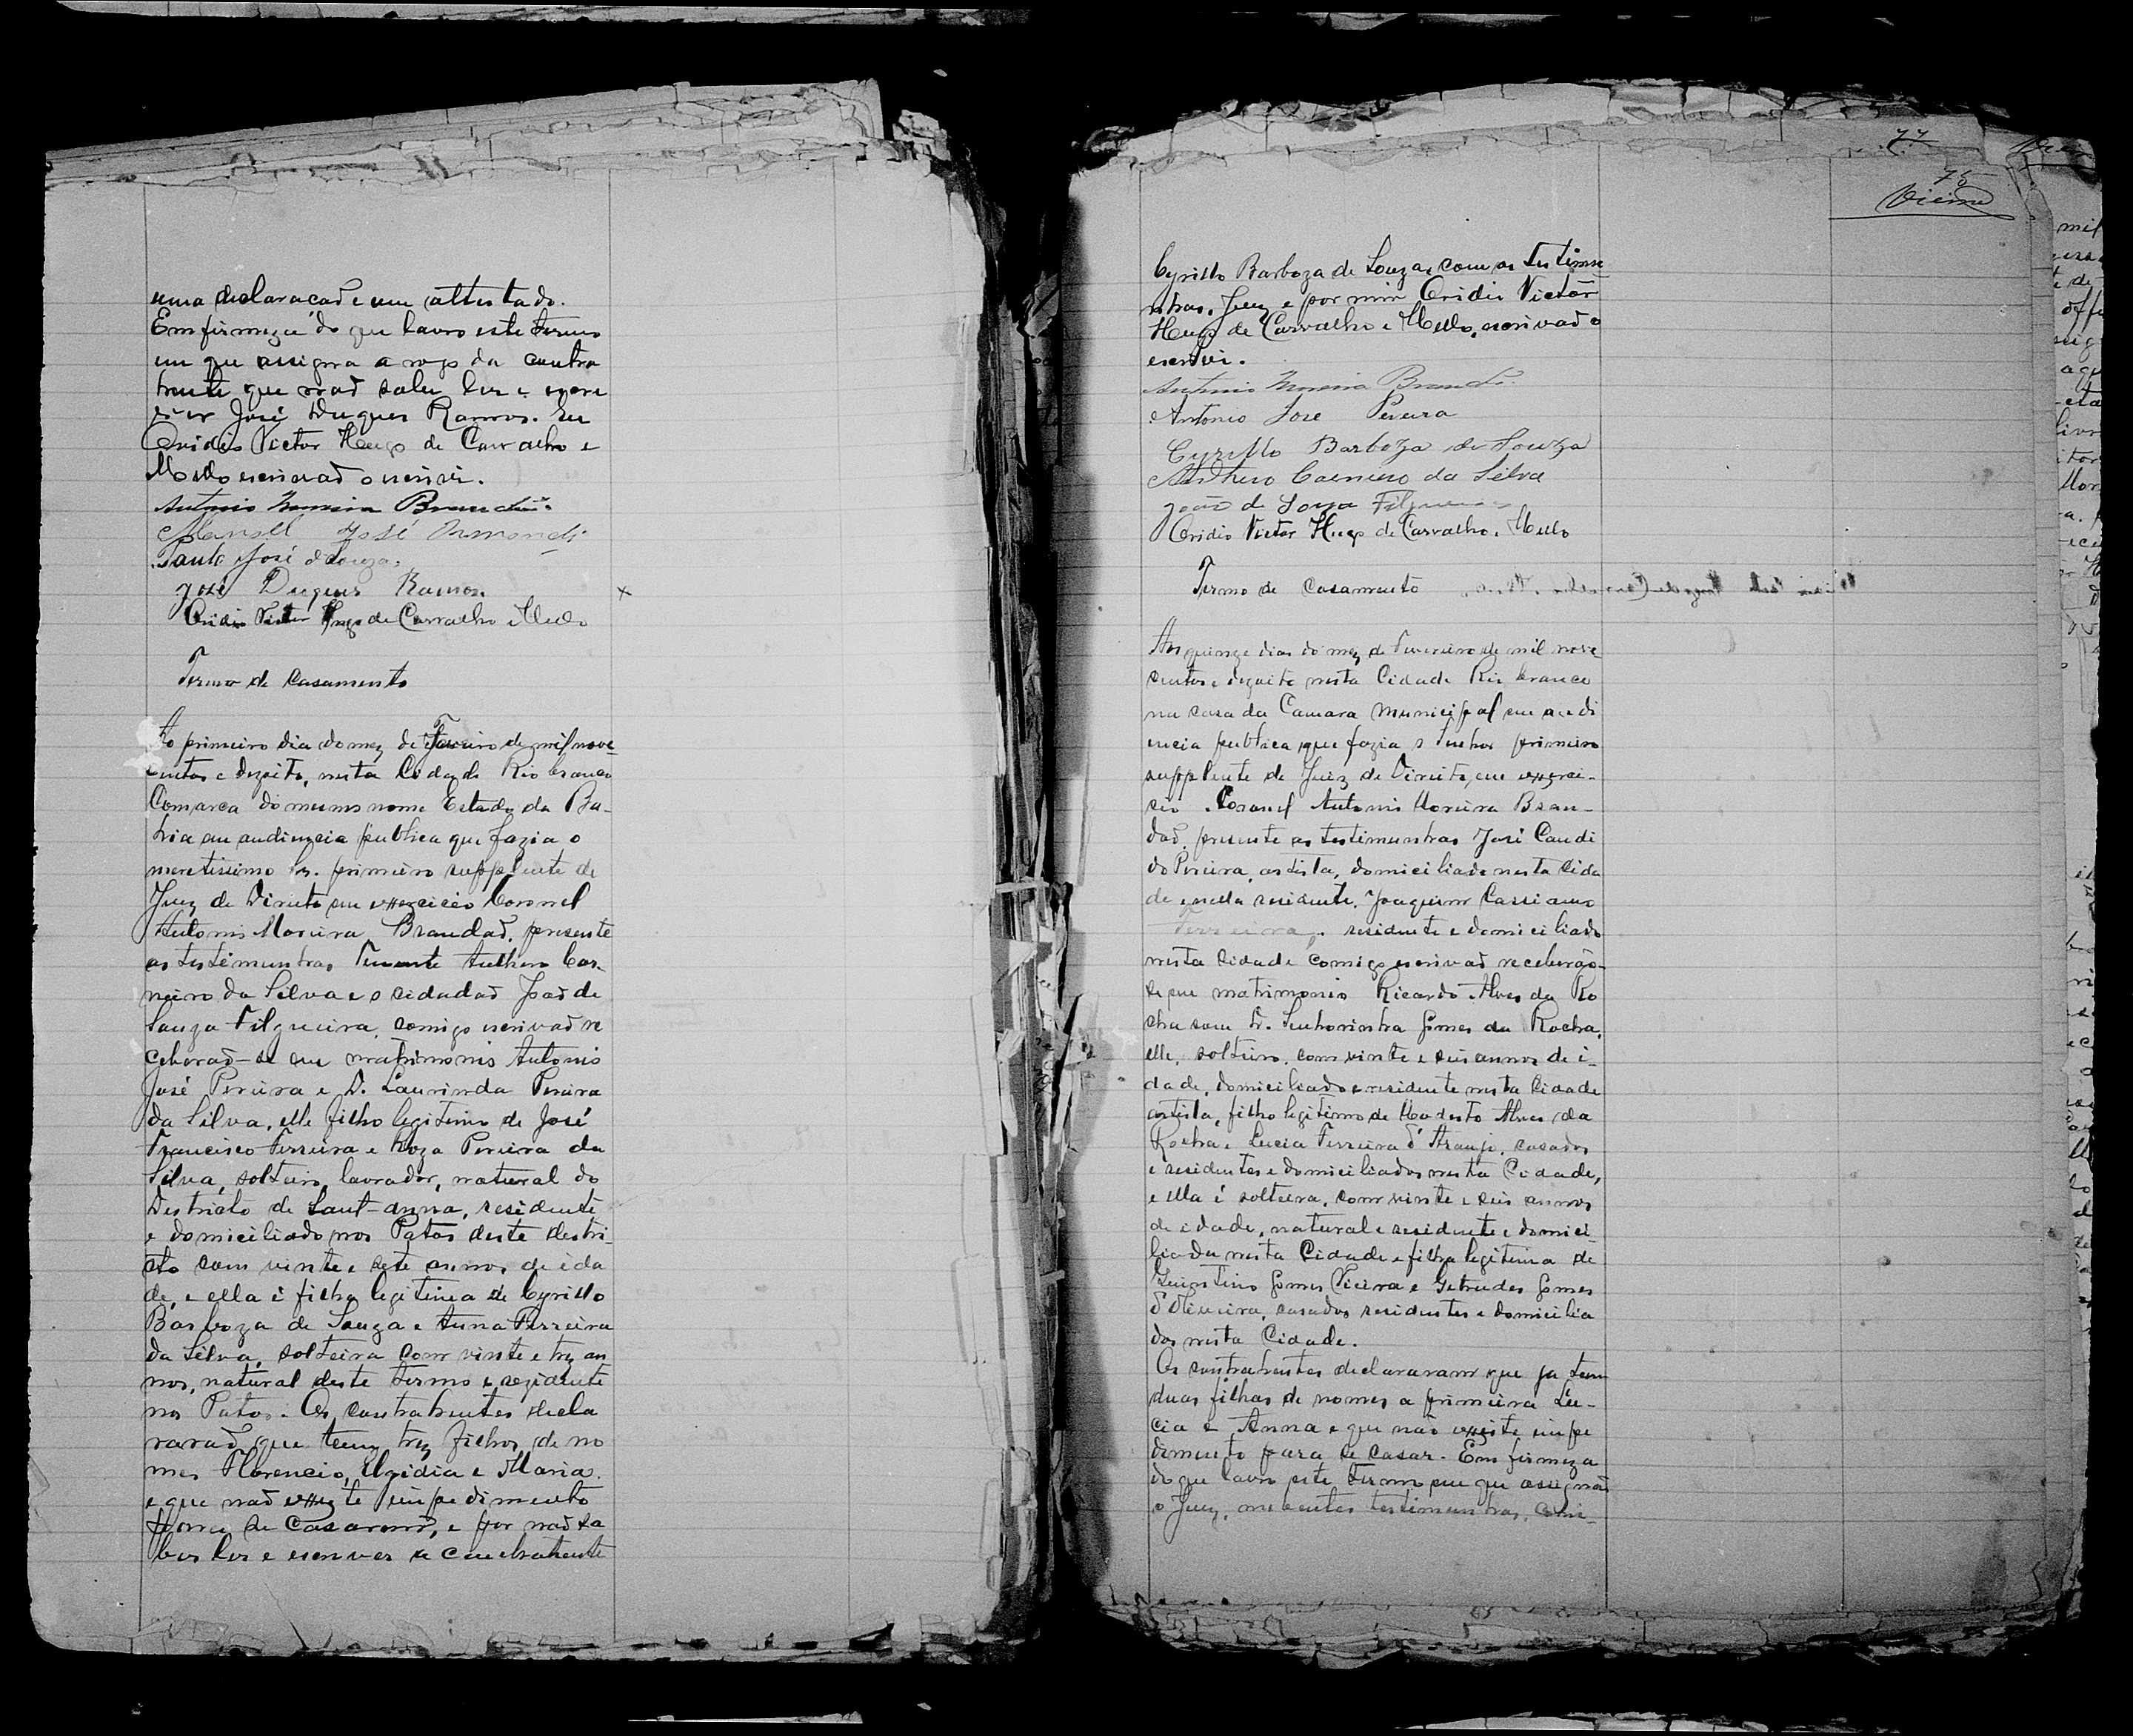 uma declaração e um attestado.
Em firmeza do que lavro este termo
em que assigna a rogo da contra
hente que não sabe ler e escre
ver José Duques Ramos. Eu
Ovidio Victor Hugo de Carvalho e
Mello escrivão o escrivi.
Antonio Moreira Brandão.
Manoel José
Paulo José d Souza.
José Duques Ramos
Ovidio Victor Hugo de Carvalho e Mello
Termo de Casamento
Ao primeiro dia do mez de Fevereiro de mil nove
centos e dezoito, nesta Cidade Rio branco
Comarca do mesmo nome Estado da Ba-
hia em audiencia publica que fazia o
meretissimo Sr. primeiro supplente de
Juez de Direito em exercicio Coronel
Antonio Moreira Brandão, presente
as testemunhas Tenente Arthuro Car-
neiro da Silva e o cidadão João de
Souza Filgueira, comigo escrivão re
ceberão-se em matrimonio Antonio
José Pereira e D. Laurinda Pereira
da Silva, elle filho legitimo de José
Francisco Ferreira e Roza Pereira da
Silva, solteiro, lavrador, natural do
Destricto de Sant-anna, residente
e domiciliado nos Patos deste destri-
cto com vinte e sete annos de ida
de, e ella é filha legitima de Cyrillo
Barboza de Souza e Anna Ferreira
da Silva, solteira com vinte e trez an
nos, natural deste termo e rezidente
nos Patos. Os contrahentes decla
rarão que tem trez filhos de no
mes Florencio, Elgidia e Maria.
e que não existe impedimento
para se casarem, e por não sa
ber ler e escrever a contrahente
77
75
Vieira
Cyrillo Barboza de Souza, com as testimu
nhas, Juez e por mim Ovidio Victor
Hugo de Carvalho e Mello, escrivão o
escrivi.
Antonio Moreira Brandão
Antonio José Pereira
Cyrillo Barboza de Souza
Arthuro Carneiro da Silva
João de Souza Filgueira
Ovidio Victor Hugo de Carvalho e Mello
Termo de Casamento
Aos quinze dias do mez de Fevereiro de mil nove
centos e dezoito nesta Cidade Rio branco
na casa da Camara Municipal em audi
encia publica, que fazia o Senhor primeiro
supplente de Juiz de Direito, em exerci-
cio Coronel Antonio Moreira Bran-
dão, presente as testimunhas José Candi
do Pereira, artista, domiciliado nesta Cida
de e nella residente, Joaquim Cassiano
Ferreira, residente e domiciliado
nesta Cidade comigo escrivão receberão-
se em matrimonio Ricardo Alves da Ro
cha com D. Senhorinha Gomes da Rocha,
elle, solteiro, com vinte e seis annos de i-
dade, domiciliado e residente nesta Cidade
artista, filho legitimo de Modesto Alves da
Rocha e Lucia Ferreira d'Araujo, casados
e residentes e domiciliados nesta Cidade,
e ella é solteira, com vinte e seis annos
de idade, natural e residente e domici-
liada nesta Cidade e filha legitima de
Quintino Gomes Vieira e Getrudes Gomes
d'Oliveira, casados residentes e domicilia
dos nesta Cidade.
Os contrahentes declararam que ja tem
duas filhas de nomes a primeira Lu-
cia e Anna e que não existe impe
dimento para se casar. Em firmeza
do que lavro este termo em que assignão
o Juez, testimunhas,